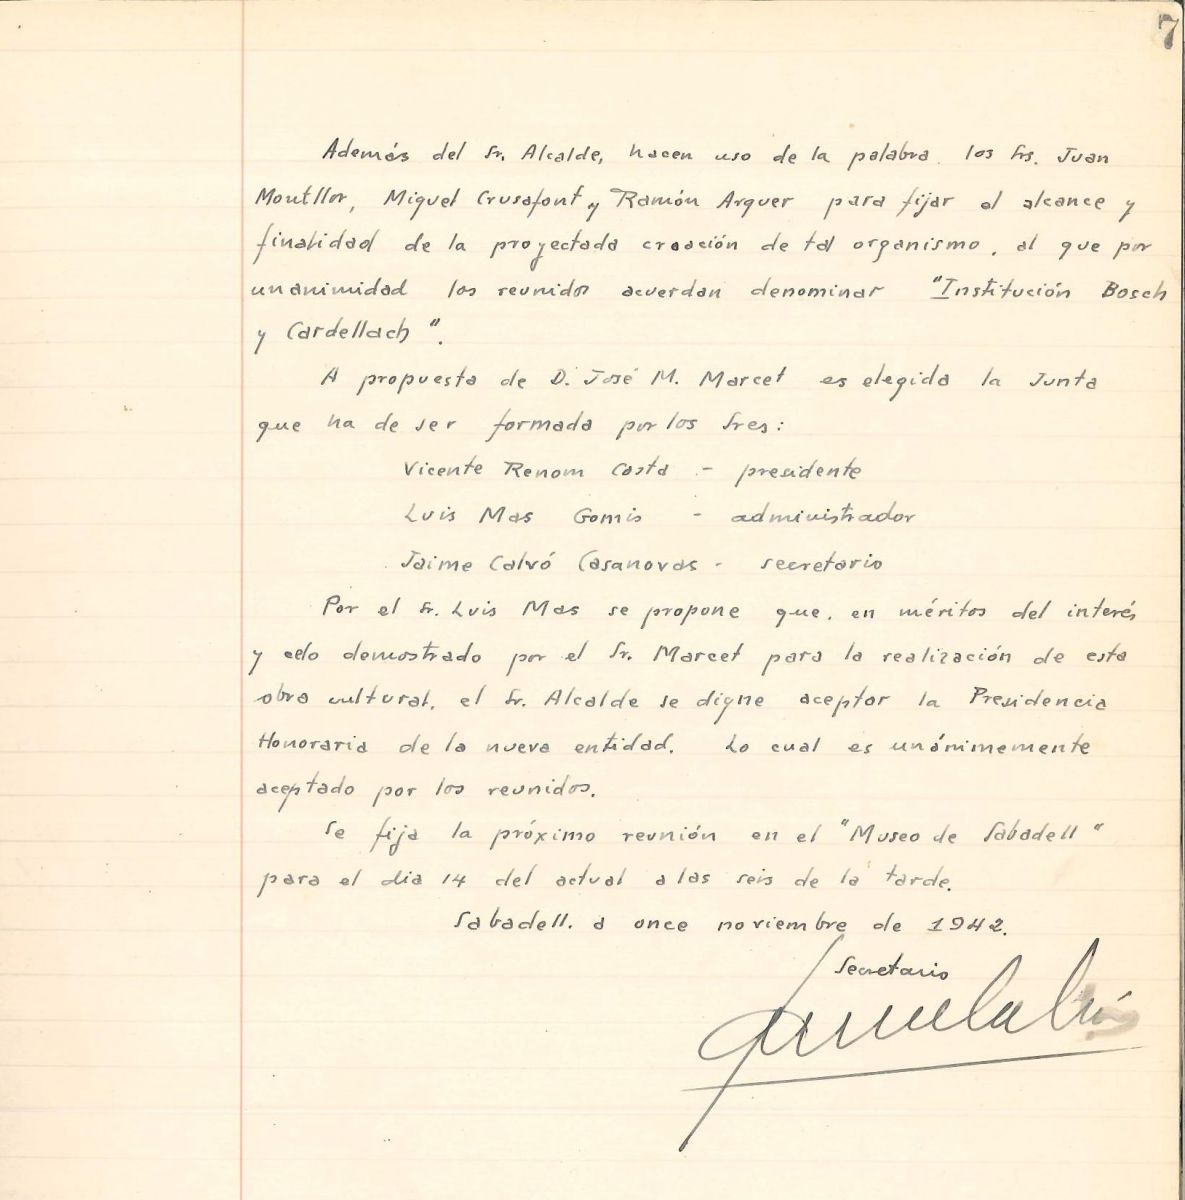 7
Además del Sr. Alcalde, hacen uso de la palabra los Srs. Juan
Montllor, Miguel Crusafont y Ramón Arquer para fijar el alcance y
finalidad de la proyectada creación de tal organismo, al que por
unanimidad los reunidos acuerdan denominar "Institución Bosch
y Cardellach".
A propuesta de D. José M. Marcet es elegida la Junta
que ha de ser formada por los Sres:
Vicente Renom Costa - presidente
Luis Mas Gomis - administrador
Jaime Calvó Casanovas - secretario
Por el Sr. Luis Mas se propone que, en méritos del interés
y celo demostrado por el Sr. Marcet para la realización de esta
obra cultural, el Sr. Alcalde se digne aceptar la Presidencia
Honoraria de la nueva entidad. Lo cual es unánimemente
aceptado por los reunidos.
Se fija la próximo reunión en el "Museo de Sabadell"
para el dia 14 del actual a las seis de la tarde.
Sabadell. a once noviembre de 1942.
Secretario